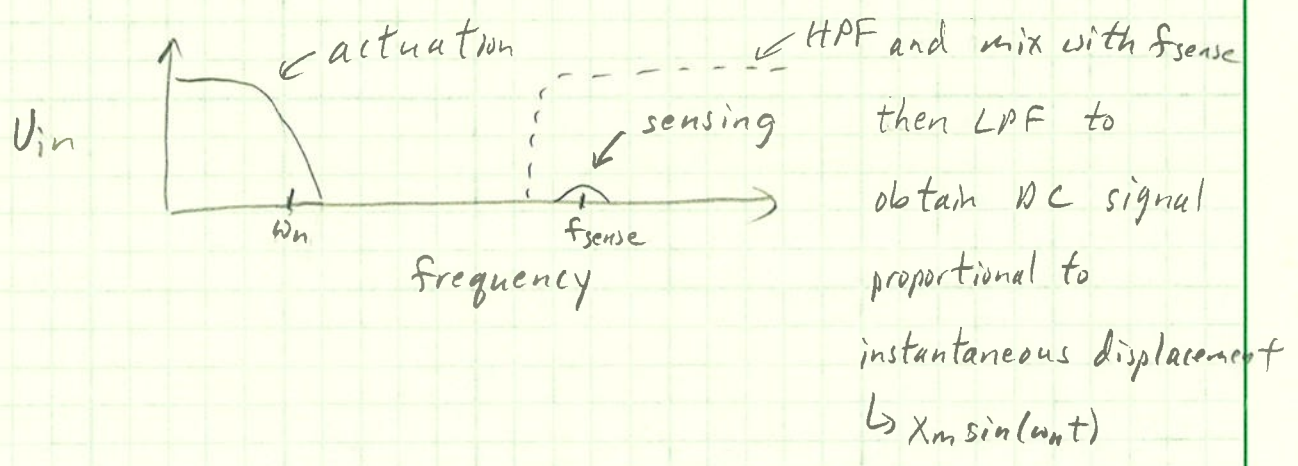 actuation
HPF and mix with fsense
Uin
sensing
then LPF to
obtain DC signal
ωn
fsense
frequency
proportional to
instantaneous displacement
↳ xm sin(ωnt)